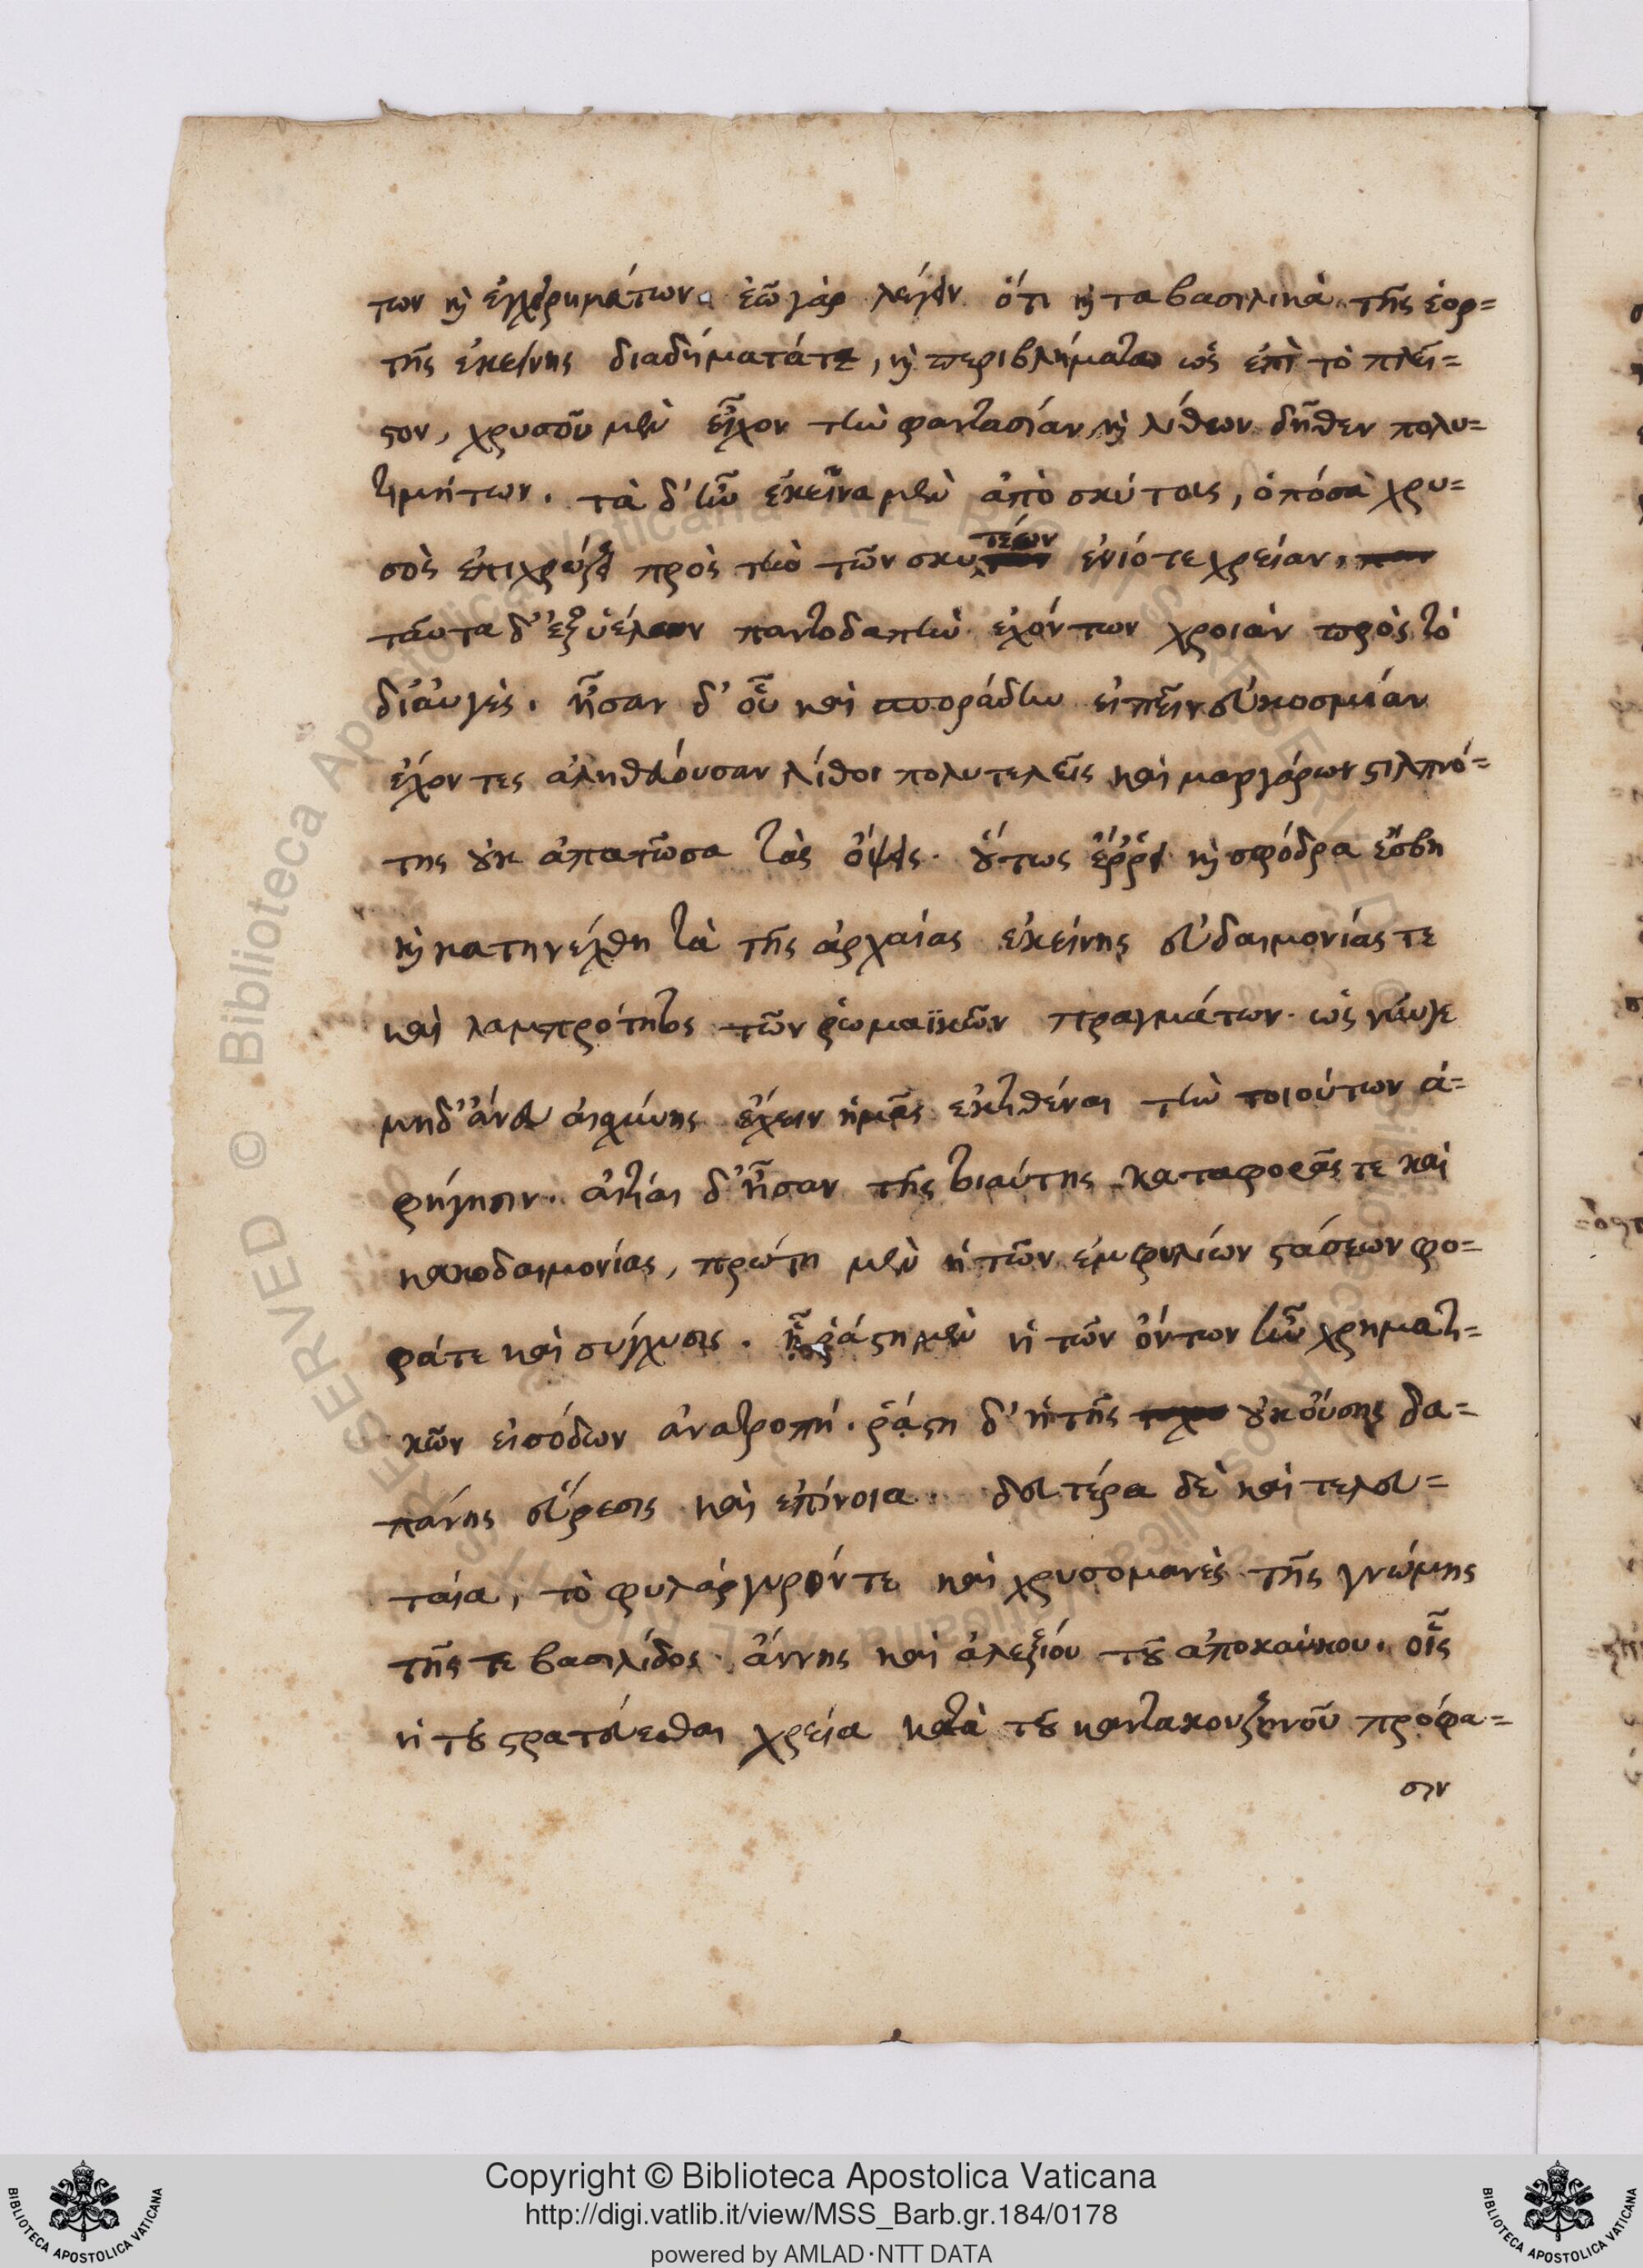 των κ̀ ἐγχειρημάτων. ἐῶ γὰρ λέγειν ὅτι κ̀ τα βασιλικὰ τῆς ἑορ=
τῆς ἐκείνης διαδήματάτε, κ̀ περιβλήματα ὡς ἐπὶ τὸ πλεῖ=
ϛον, χρυσοῦ μὲν εἶχον τὴν φαντασίαν, κ̀ λίθων δῆθεν πολυ=
τιμήτων. τὰ δ' ἦν ἐκεῖνα μὲν ἀπὸ σκύτους, ὁπόσα χρυ=
σὸς ἐπιχρώζει πρὸς τὴν τῶν σκυτέων ἐνιότε χρείαν,
ταυτα δ' ἐξ ὑέλων παντοδαπὴν ἐχόντων χροιὰν πρὸς τὸ
διαυγὲς. ἦσαν δ' οὗ καὶ σποράδην εἰπεῖν εὐκοσμίαν
ἔχοντες ἀληθεύουσαν λίθοι πολυτελεῖς καὶ μαργάρων ϛιλπνό=
της ȣκ ἀπατῶσα τὰς ὄψεις. ȣ̔́τως ἔῤῥει κ̀ σφόδρα ἔσβη
κ̀ κατηνέχθη τὰ τῆς ἀρχαίας ἐκείνης εὐδαιμονίας τε
καὶ λαμπρότητος τῶν ῥωμαϊκῶν πραγμάτων. ὡς νάυγε
μηδ' ἄνευ αἰσχύνης ἔχειν ἡμᾶς ἐκτιθέναι τὴν τοιούτων ἀ=
φήγησιν. αἰτίαι δ' ἦσαν τῆς τοιαύτης καταφορᾶς τε καὶ
κακοδαιμονίας, πρώτη μὲν ἡ τῶν ἐμφυλίων ϛάσεων φο=
ράτε καὶ σύγχυσις. ῥάϛη μὲν ἡ τῶν ὄντων ἦν χρηματι=
κῶν εἰσόδων ἀνατροπή. ῥάϛη δ' ἡ τῆς ȣκ οὔσης δα=
πάνης εὕρεσις καὶ ἐπίνοια. δευτέρα δὲ καὶ τελευ=
ταία, τὸ φυλάργυρόντε καὶ χρυσομανὲς τῆς γνώμης
τῆς τε βασιλίδος ἄννης καὶ ἀλεξίου τȣ͂ ἀποκαύκου. οἷς
ἡ τȣ͂ ϛρατεύεσθαι χρεία κατὰ τȣ͂ καντακουζηνοῦ πρόφα=
σιν
Copyright © Biblioteca Apostolica Vaticana
http://digi.vatlib.it/view/MSS_Barb.gr.184/0178
powered by AMLAD·NTT DATA